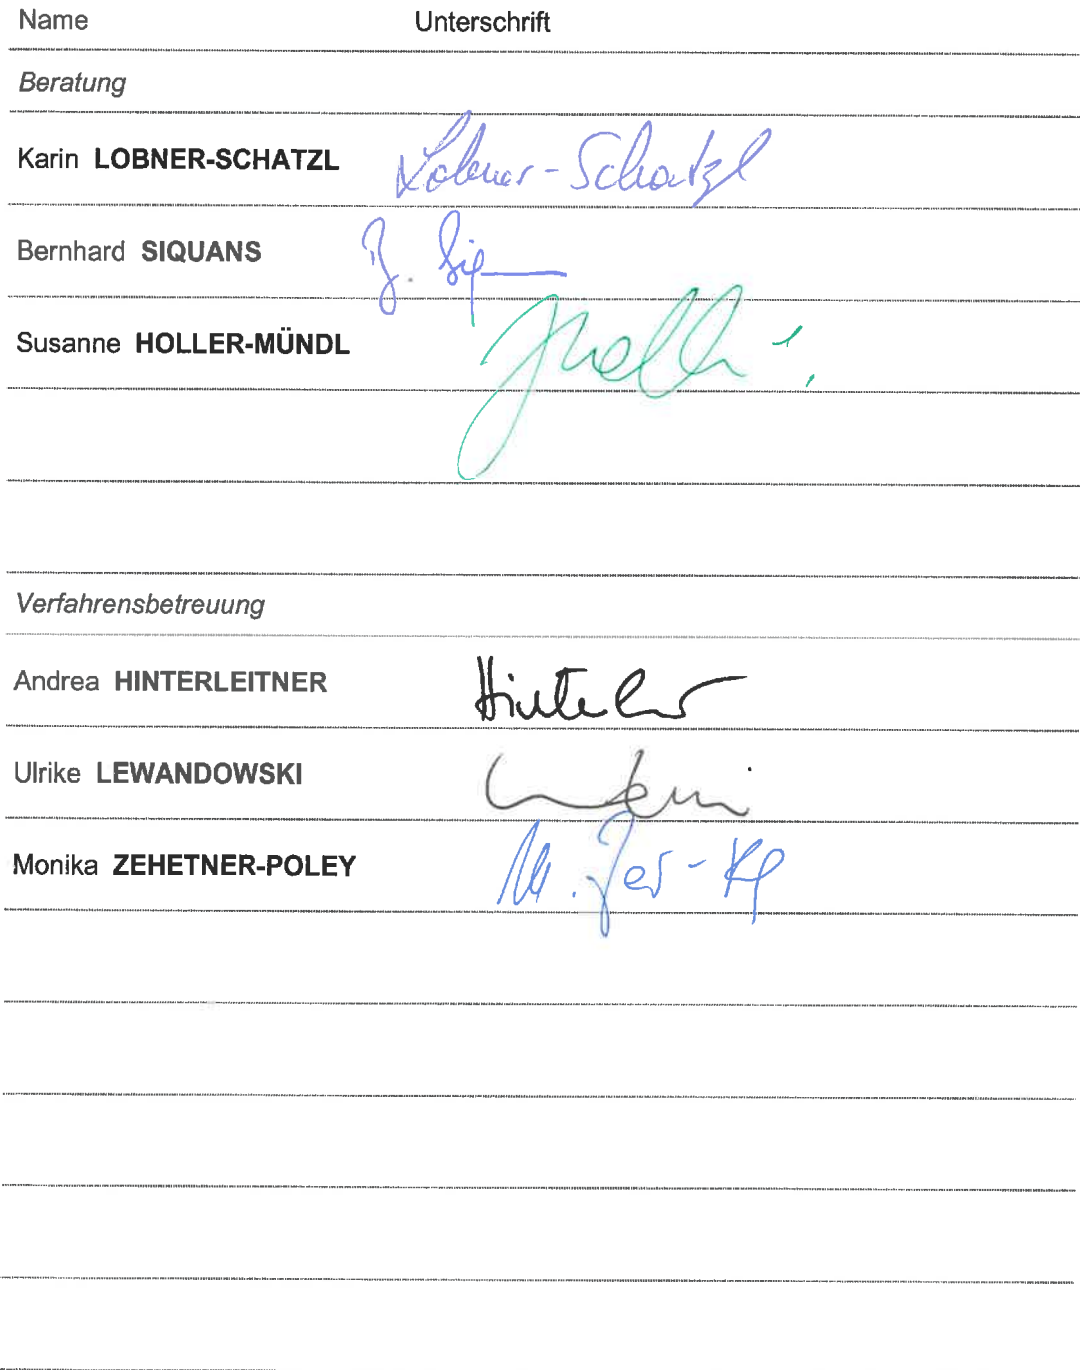 Name Unterschrift
Beratung
Karin LOBNER-SCHATZL Lobner-Schatzl
Bernhard SIQUANS B. Siq
Susanne HOLLER-MÜNDL
Verfahrensbetreuung
Andrea HINTERLEITNER
Ulrike LEWANDOWSKI
Monika ZEHETNER-POLEY